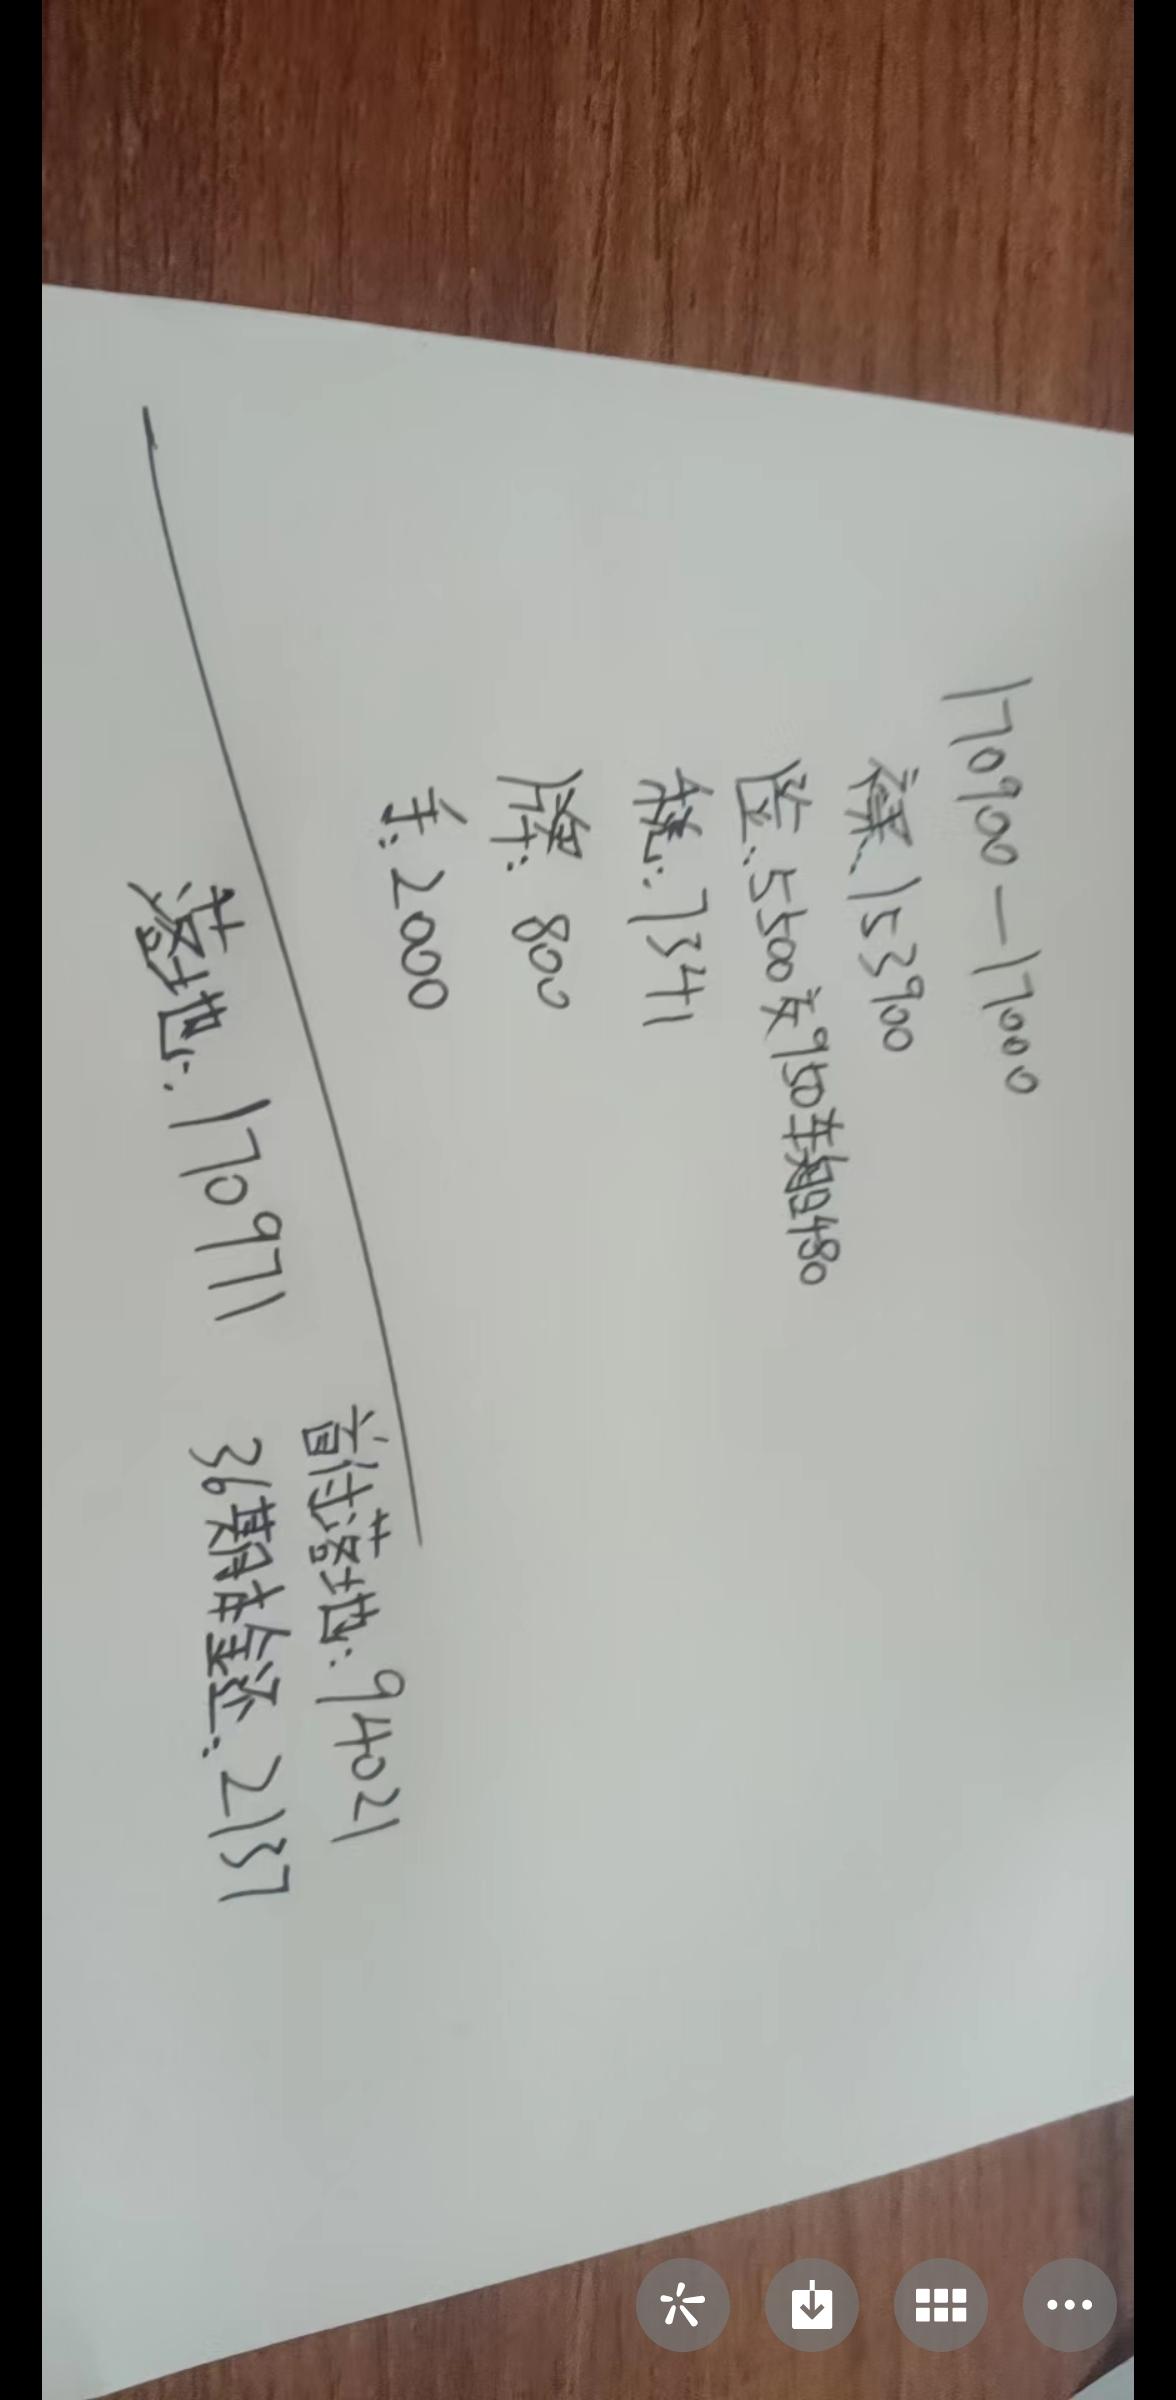 170900—17000
裸:153900
险:5500交950车船480
税:7341
牌:800
手:2000
落地:170971
首付落地:94021
36期月金还:2137